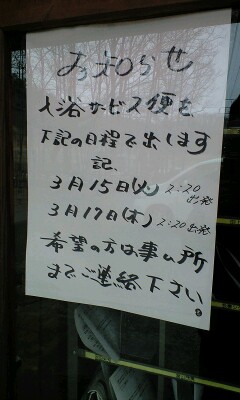 お知らせ
入浴サービス便を
下記の日程で出します
記、
3月15日(火) 2:20出発
3月17日(木) 2:20出発
希望の方は事ム所
までご連絡下さい。